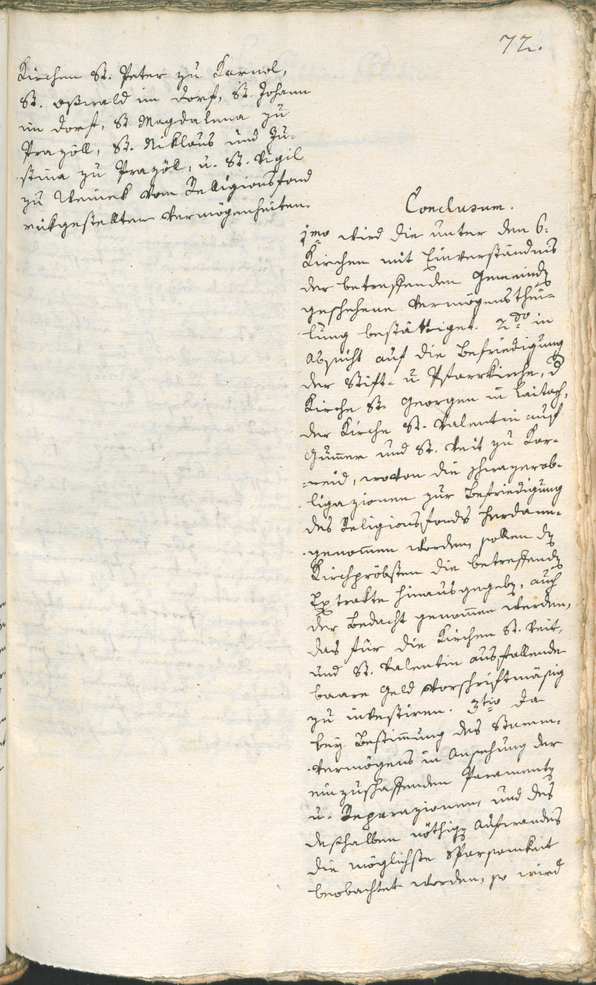 72.
Kirchen St. Peter zu Karnol,
St. Oßwald im Dorf, St. Johann
im Dorf, St Magdalena zu
Prazöll, St. Niklaus und Ju-
stina zu Prazöl, u. St. Vigil
zu Weinek vom Religionsfond
rükgestellten Vermögenheiten.
Conclusum.
1mo wird die unter den 6.
Kirchen mit Einverständnis
der betreffenden Gemeinds
geschehene Vermögensthei-
lung bestättiget. 2do in
Absicht auf die Befriedigung
der Stift- u Pfarrkirche, d
Kirche St. Georgen in Laitach,
der Kirche St. Valentin auf
Gumer und St. Veit zu Kar-
neid, wovon die
ligazionen zur Befriedigung
des Religionsfonds herdann-
genommen worden, sollen den
Kirchpröbsten die betreffenden
Extrakte hinausgegeben, auch
der Bedacht genommen werden,
das für die Kirchen St. Veit,
und St. Valentin ausfallende
baare Geld vorschriftmäsig
zu investiren. 3tio da
bey Bestimmung des Stamm-
vermögens in Ansehung der
einzuschaffenden Paramenten
u. Reparazionen, und des
deßhalben nöthigen Aufwandes
die möglichste Sparsamkeit
beobachtet worden, so wird